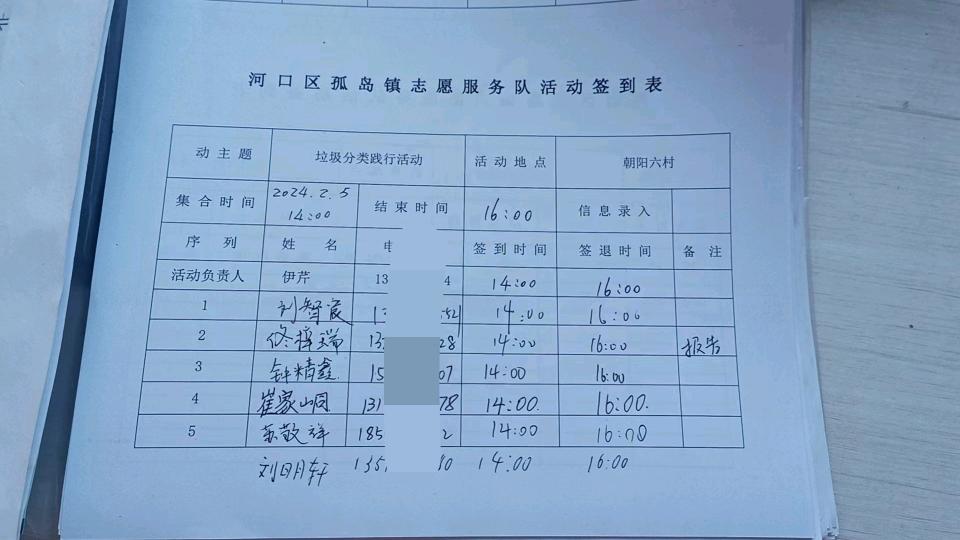 河口区孤岛镇志愿服务队活动签到表
动主题 垃圾分类践行活动 活动地点 朝阳六村
集合时间 2024.2.5 14:00 结束时间 16:00 信息录入
序列 姓名 电 签到时间 签退时间 备注
活动负责人 伊芹 13 4 14:00 16:00
1 刘智宸 13 52 14:00 16:00
2 佟梓瑞 13 28 14:00 16:00 报告
3 钟精鑫 15 07 14:00 16:00
4 崔家峒 131 78 14:00. 16:00.
5 苏敬祥 185 2 14:00 16:00
刘明轩 135 40 14:00 16:00